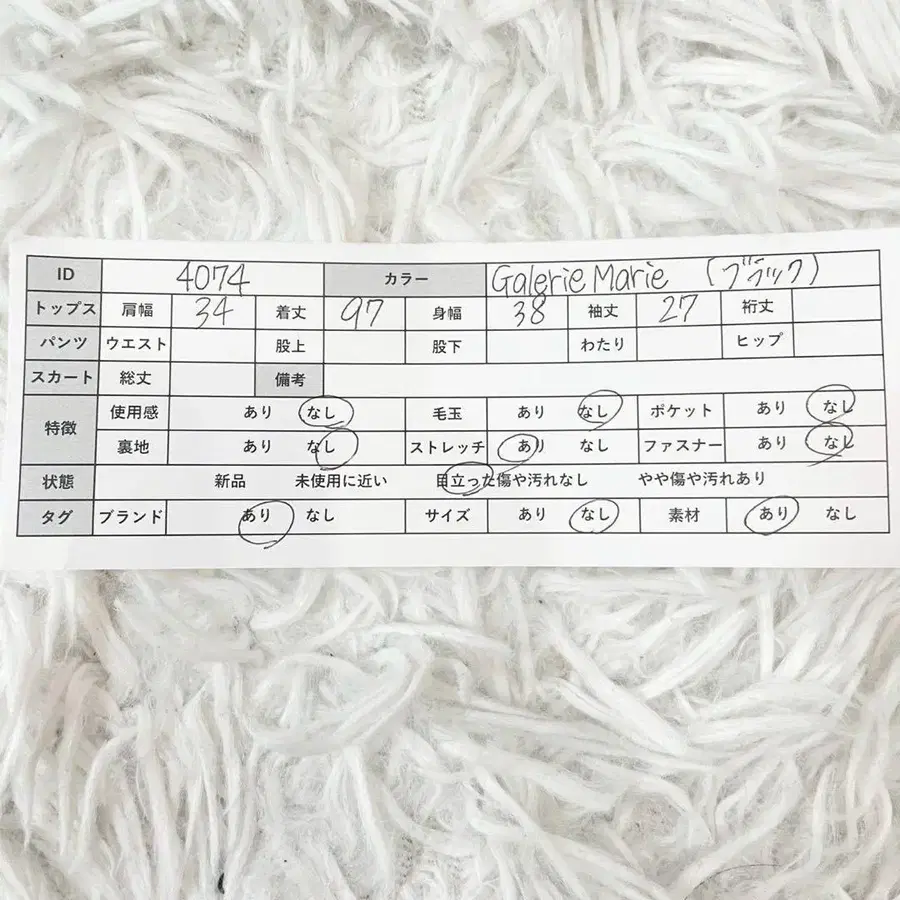 ID 4074 カラー Galerie Marie (ブラック)
トップス 肩幅 34 着丈 97 身幅 38 袖丈 27 裄丈
パンツ ウエスト 股上 股下 わたり ヒップ
スカート 総丈 備考
特徴 使用感 あり なし 毛玉 あり なし ポケット あり なし
裏地 あり なし ストレッチ あり なし ファスナー あり なし
状態 新品 未使用に近い 目立った傷や汚れなし やや傷や汚れあり
タグ ブランド あり なし サイズ あり なし 素材 あり なし